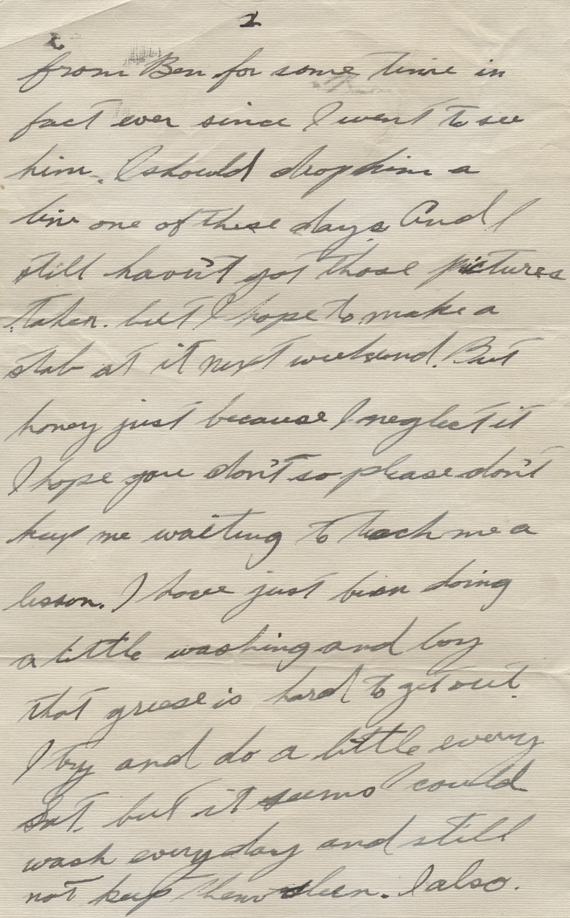 2
from Ben for some time in
fact ever since I went to see
him. I should drop him a
line one of these days And I
still haven't got those pictures
taken. but I hope to make a
stab at it next weekend. But
honey just because I neglect it
I hope you don't so please don't
keep me waiting to teach me a
lesson. I have just been doing
a little washing and boy
that grease is hard to get out.
I try and do a little every
Sat. but it seems I could
wash everyday and still
not keep them clean. I also.